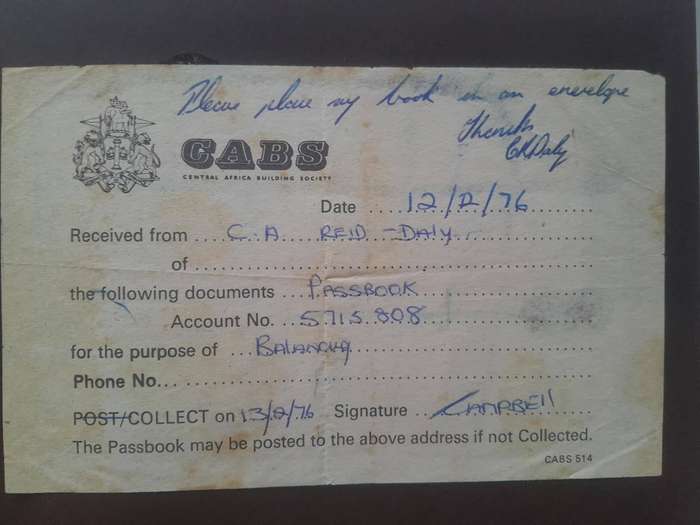 Please place my book in an envelope
Thanks
CRDaly
CABS
CENTRAL AFRICA BUILDING SOCIETY
Date 12/12/76
Received from C. A REID-DALY
of
the following documents PASSBOOK
Account No. 5715.808
for the purpose of BALANCING
Phone No.
POST/COLLECT on 13/12/76 Signature CAMPBELL
The Passbook may be posted to the above address if not Collected.
CABS 514